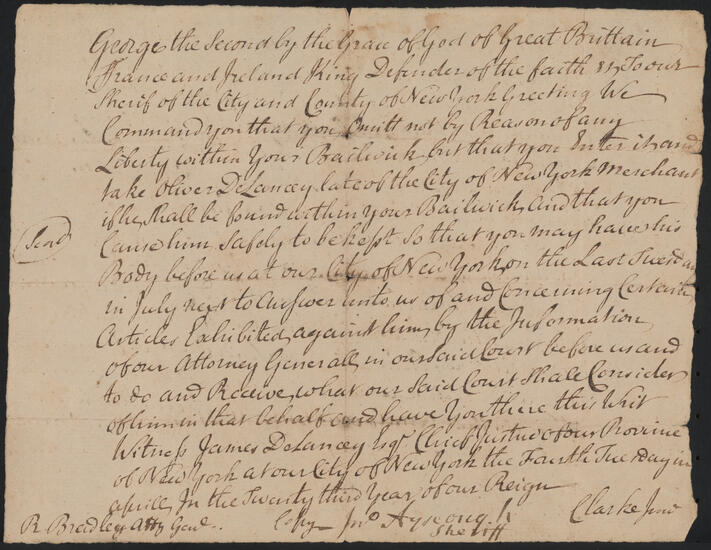 George the Second by the Grace of God of Great Brittain
France and Ireland King Defender of the faith &c To our
Sherif of the City and County of New York Greeting We
Command you that you Omitt not by Reason of any
Liberty within Your Bailwick but that you Enter it and
take Oliver DeLancey late of the City of New York Merchant
if he shall be found within your Bailwick And that you
Cause him Safely to be kept So that you may have his
Body before us at our City of New York on the Last Tuesday
in July next to Answer unto us of and Concerning Certain
Articles Exhibited against him by the Information
of our Attorney Generall in our said Court before us and
to do and Receive what our Said Court Shall Consider
of him in that behalf and have You there this Writ
Witness James DeLancey Esqr Chief Justice of our Province
of New York at our City of New York the Fourth Tuesday in
aprill In the Twenty third Year of our Reign
R Bradley Atty Genl Copy Jno Ayscough Clarke Junr
Sheriff